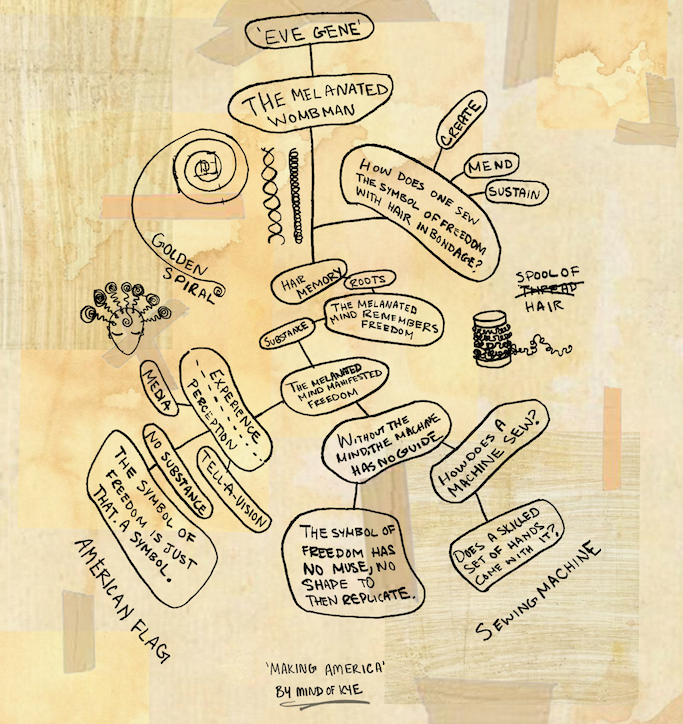 'EVE GENE'
THE MELANATED
WOMBMAN
CREATE
MEND
SUSTAIN
HOW DOES ONE SEW
THE SYMBOL OF FREEDOM
WITH HAIR IN BONDAGE?
GOLDEN
SPIRAL
HAIR
MEMORY
ROOTS
SPOOL OF
THREAD
HAIR
SUBSTANCE
THE MELANATED
MIND REMEMBERS
FREEDOM
THE MELANATED
MIND MANIFESTED
FREEDOM
MEDIA
EXPERIENCE
PERCEPTION
NO SUBSTANCE
TELL-A-VISION
THE SYMBOL OF
FREEDOM IS JUST
THAT. A SYMBOL.
AMERICAN FLAG
WITHOUT THE
MIND, THE MACHINE
HAS NO GUIDE.
HOW DOES A
MACHINE SEW?
THE SYMBOL OF
FREEDOM HAS
NO MUSE, NO
SHAPE TO
THEN REPLICATE.
DOES A SKILLED
SET OF HANDS
COME WITH IT?
SEWING MACHINE
'MAKING AMERICA'
BY MIND OF KYE